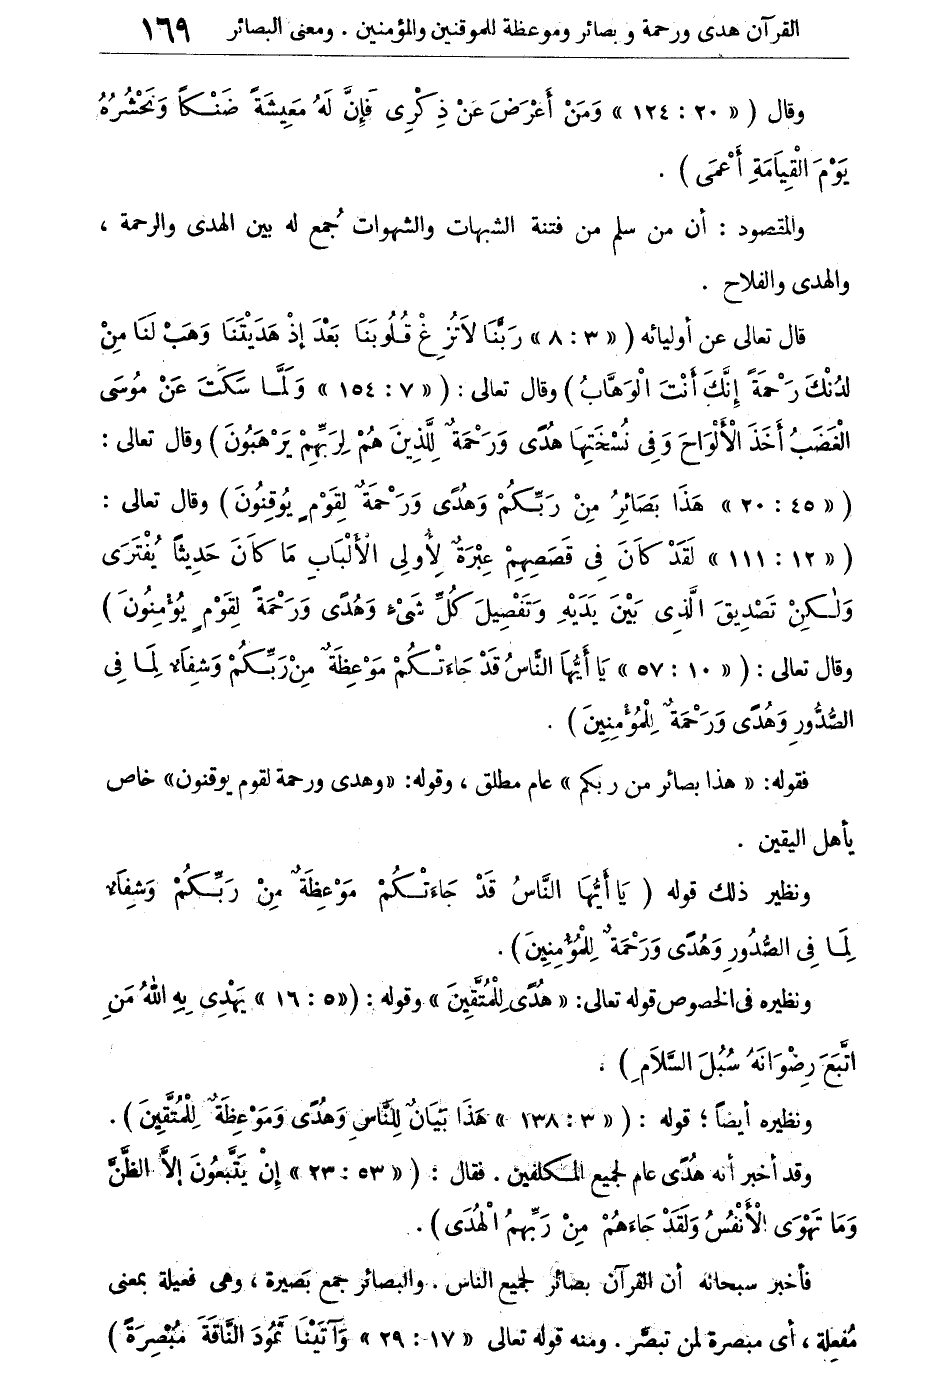 القرآن هدى ورحمة و بصائر وموعظة للموقنين والمؤمنين . ومعنى البصائر ١٦٩
وقال ( « ٢٠ : ١٢٤ » وَمَنْ أَعْرَضَ عَنْ ذِكْرِى فَإِنَّ لَهُ مَعِيشَةً ضَنْكاً وَنَحْشُرُهُ
يَوْمَ الْقِيَامَةِ أَعْمَى ) .
والمقصود : أن من سلم من فتنة الشبهات والشهوات جُمع له بين الهدى والرحمة ،
والهدى والفلاح .
قال تعالى عن أوليائه ( « ٣ : ٨ » رَبَّنَا لاَتُزِغْ قُلُوبَنَا بَعْدَ إِذْ هَدَيْتَنَا وَهَبْ لَنَا مِنْ
لَدُنْكَ رَحْمَةً إِنَّكَ أَنْتَ الْوَهَّابُ ) وقال تعالى : ( « ٧ : ١٥٤ » وَلَمَّا سَكَتَ عَنْ مُوسَى
الْغَضَبُ أَخَذَ الْأَلْوَاحَ وَفِى نُسْخَتِهَا هُدًى وَرَحْمَةٌ لِلَّذِينَ هُمْ لِرَبِّهِمْ يَرْهَبُونَ ) وقال تعالى :
( « ٤٥ : ٢٠ » هَذَا بَصَائِرُ مِنْ رَبِّكُمْ وَهُدًى وَرَحْمَةٌ لِقَوْمٍ يُوقِنُونَ ) وقال تعالى :
( « ١٢ : ١١١ » لَقَدْ كَانَ فِى قَصَصِهِمْ عِبْرَةٌ لِأُولِى الْأَلْبَابِ مَا كَانَ حَدِيثاً يُفْتَرَى
وَلٰكِنْ تَصْدِيقَ الَّذِى بَيْنَ يَدَيْهِ وَتَفْصِيلَ كُلِّ شَىْءٍ وَهُدًى وَرَحْمَةً لِقَوْمٍ يُؤْمِنُونَ )
وقال تعالى : ( « ١٠ : ٥٧ » يَا أَيُّهَا النَّاسُ قَدْ جَاءَتْكُمْ مَوْعِظَةٌ مِنْ رَبِّكُمْ وَشِفَاءٌ لِمَا فِى
الصُّدُورِ وَهُدًى وَرَحْمَةٌ لِلْمُؤْمِنِينَ ) .
فقوله: « هذا بصائر من ربكم » عام مطلق ، وقوله: «وهدى ورحمة لقوم يوقنون» خاص
بأهل اليقين .
ونظير ذلك قوله ( يَا أَيُّهَا النَّاسُ قَدْ جَاءَتْكُمْ مَوْعِظَةٌ مِنْ رَبِّكُمْ وَشِفَاءٌ
لِمَا فِى الصُّدُورِ وَهُدًى وَرَحْمَةٌ لِلْمُؤْمِنِينَ ) .
ونظيره فى الخصوص قوله تعالى: « هُدًى لِلْمُتَّقِينَ » وقوله : («٥ : ١٦ » يَهْدِى بِهِ اللهُ مَنِ
اتَّبَعَ رِضْوَانَهُ سُبُلَ السَّلاَمِ ) .
ونظيره أيضاً ؛ قوله : ( « ٣ : ١٣٨ » هَذَا بَيَانٌ لِلنَّاسِ وَهُدًى وَمَوْعِظَةٌ لِلْمُتَّقِينَ ) .
وقد أخبر أنه هُدًى عام لجميع المكلفين . فقال : ( « ٥٣ : ٢٣ » إِنْ يَتَّبِعُونَ إِلاَّ الظَّنَّ
وَمَا تَهْوَى الْأَنْفُسُ وَلَقَدْ جَاءَهُمْ مِنْ رَبِّهِمُ الْهُدَى ) .
فأخبر سبحانه أن القرآن بصائر لجميع الناس . والبصائر جمع بَصيرة ، وهى فعيلة بمعنى
مُفعِلة ، أى مبصرة لمن تبصَّر . ومنه قوله تعالى « ١٧ : ٢٩ » وَآتَيْنَا ثَمُودَ النَّاقَةَ مُبْصِرَةً )